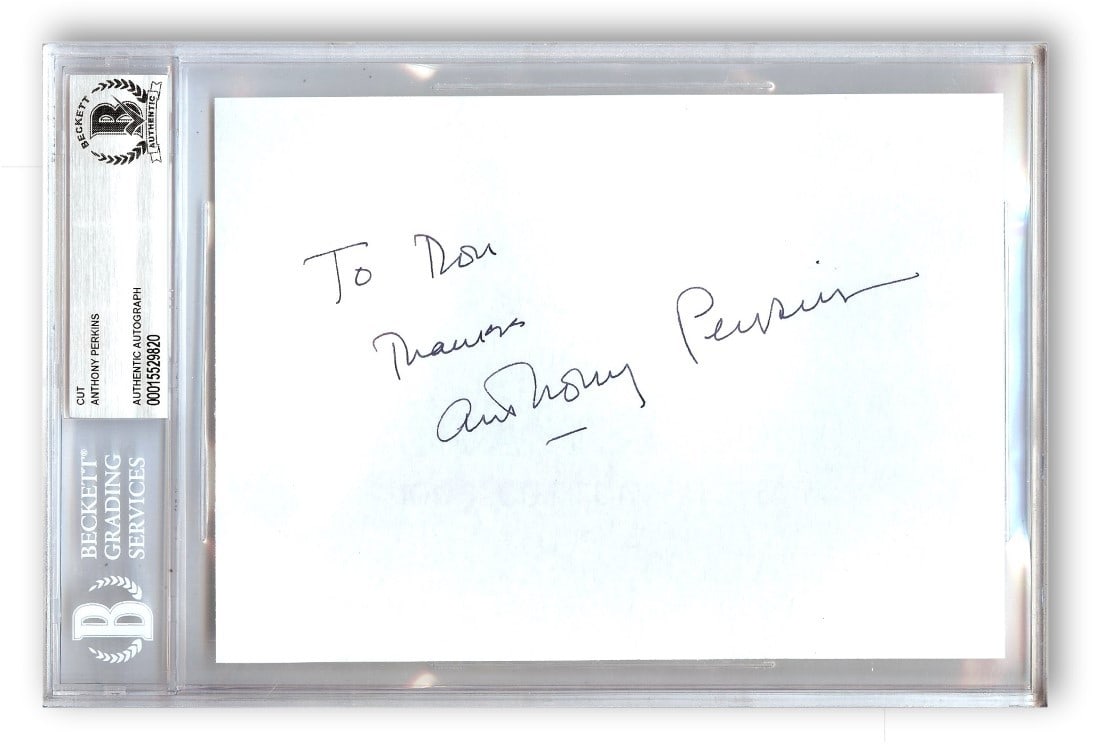 BECKETT
B
AUTHENTIC
CUT
ANTHONY PERKINS
AUTHENTIC AUTOGRAPH
00015529820
BECKETT®
GRADING
SERVICES
B
To Don
Thanks
Anthony Perkins